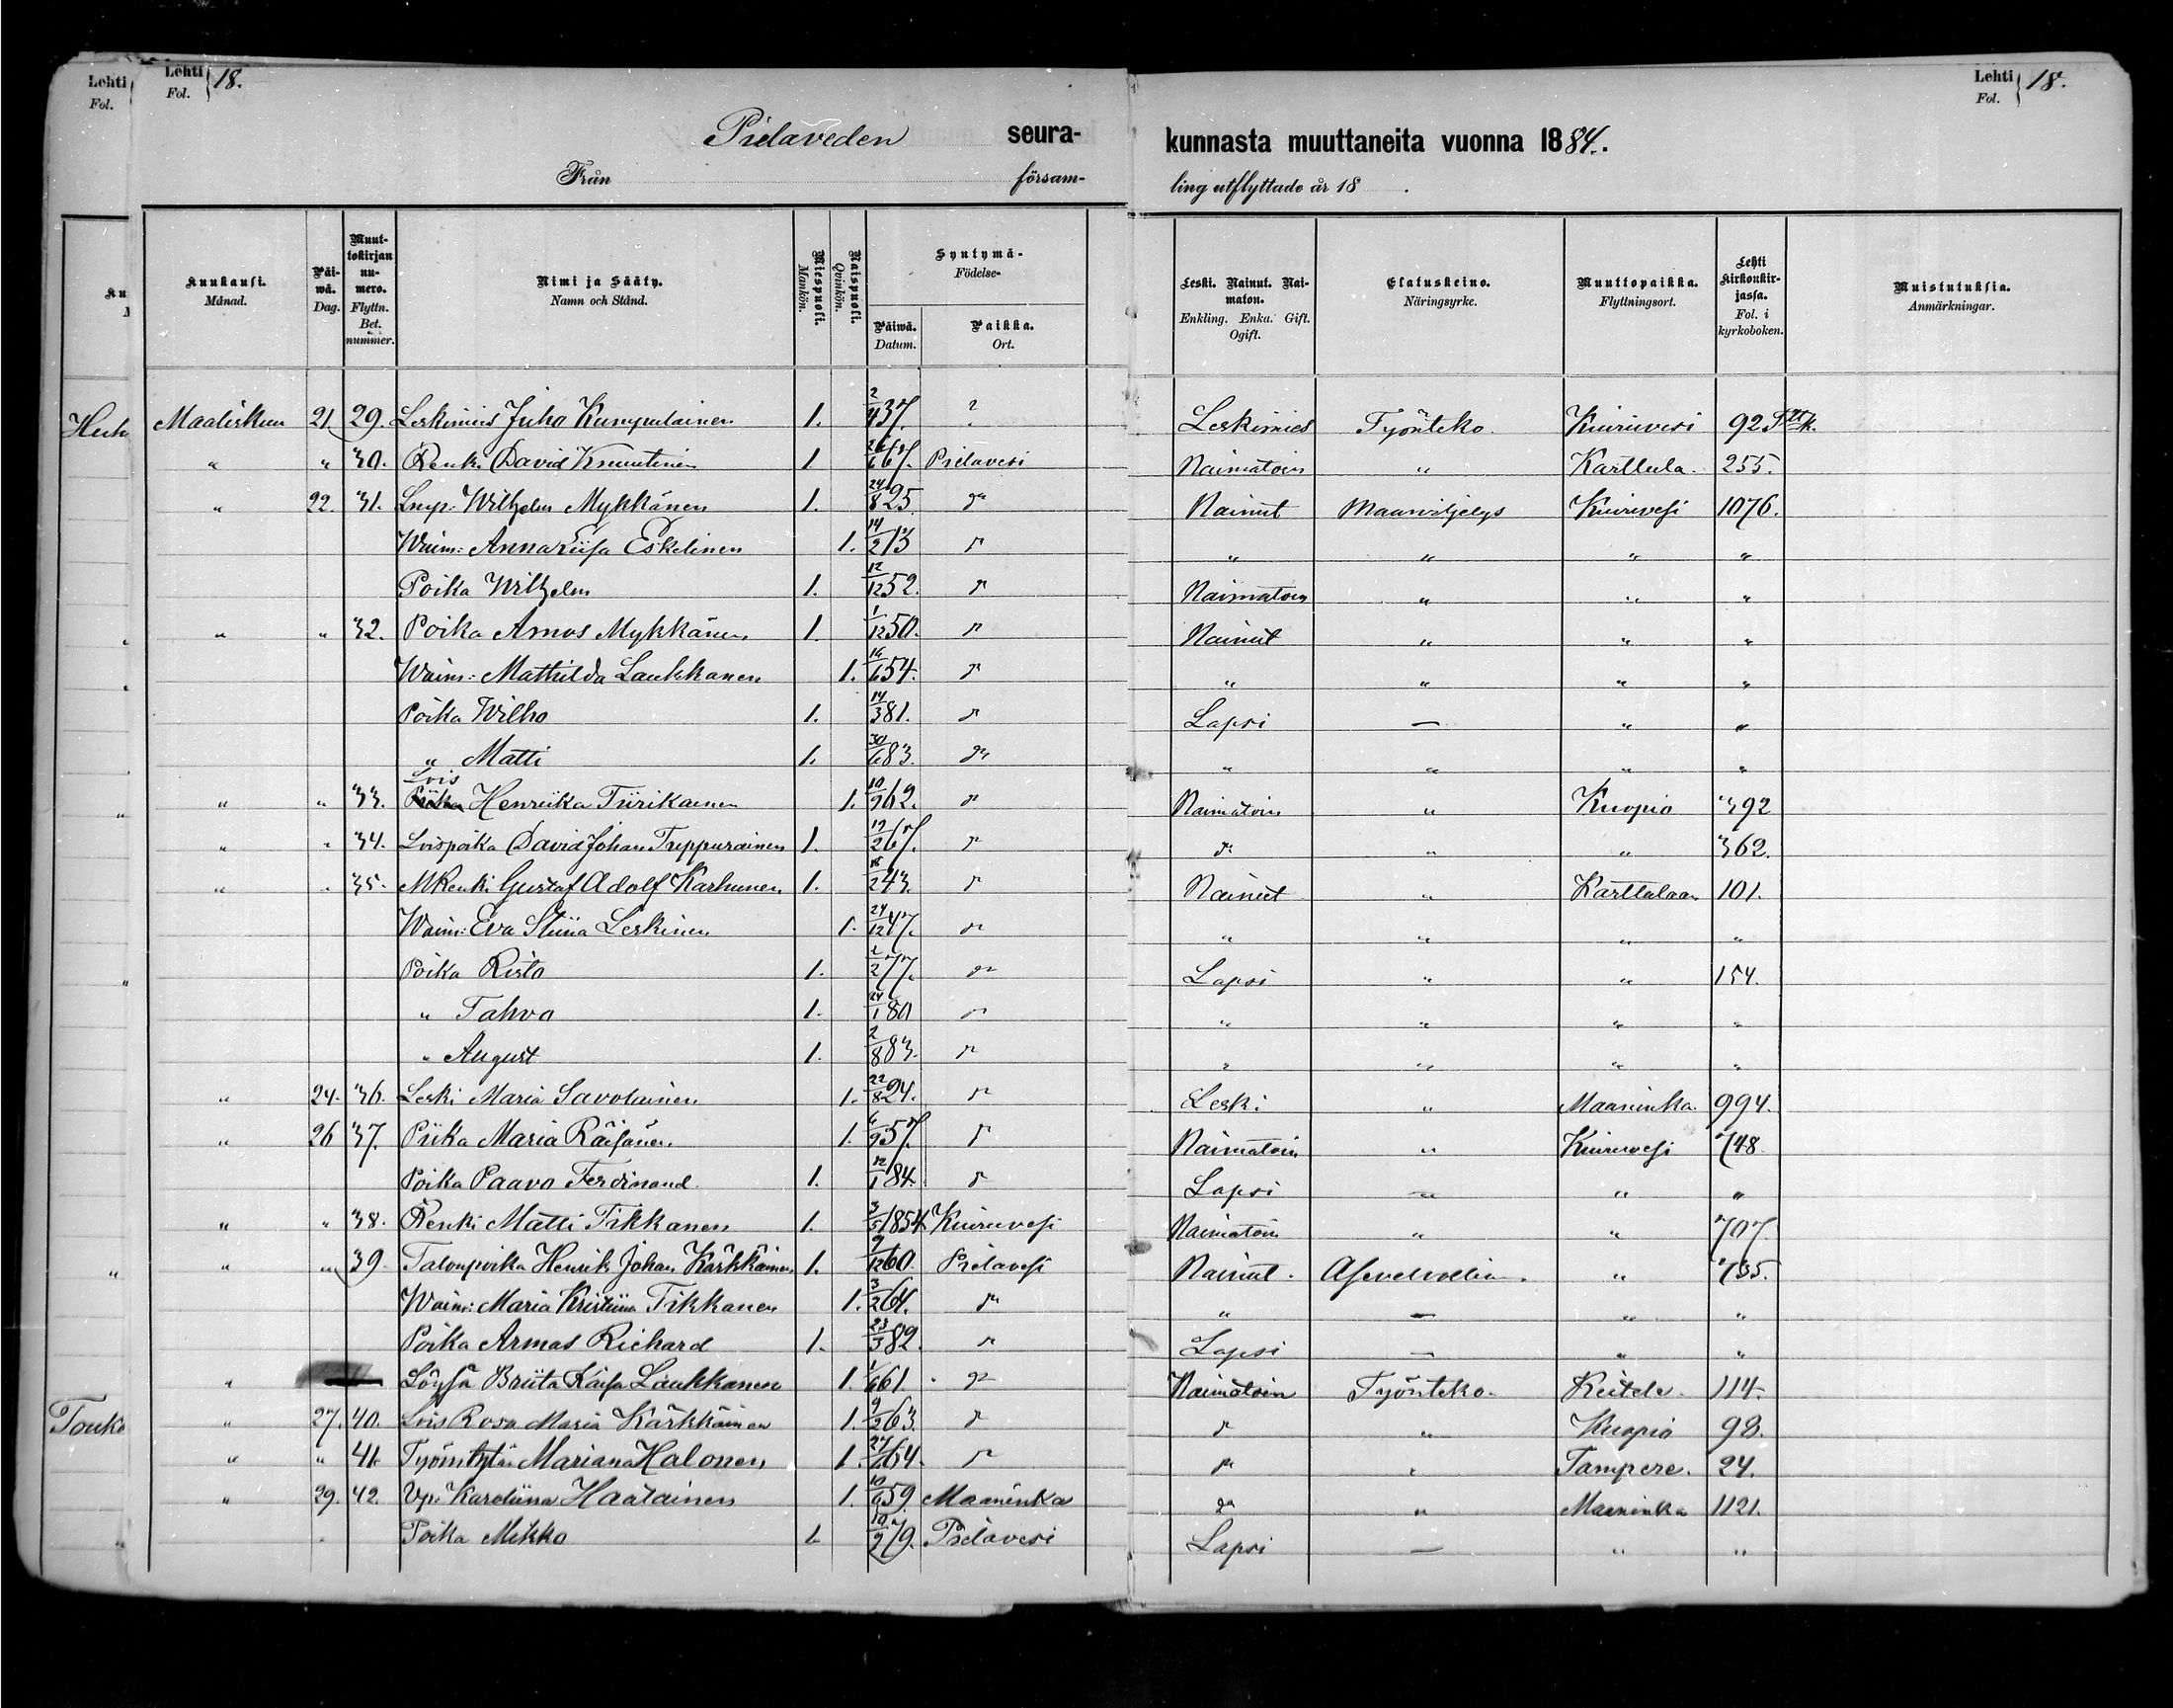 Lehti Fol. 18.
Lehti Fol. 18.
Lehti Fol.
Pielaveden seurakunnasta muuttaneita vuonna 1884.
Från församling utflyttade år 18 .
Kuukausi. Månad. Päiwä. Dag. Muuttokirjan numero. Flyttn. Bet. nummer. Nimi ja Sääty. Namn och Stånd. Miespuoli. Mankön. Naispuoli. Qvinkön. Syntymä- Födelse- Päiwä. Datum. Paikka. Ort. Leski. Nainut. Naimaton. Enkling. Enka. Gift. Ogift. Elatuskeino. Näringsyrke. Muuttopaikka. Flyttningsort. Lehti kirkonkirjassa. Fol. i kyrkoboken. Muistutuksia. Anmärkningar.
Maaliskuu 21. 29. Leskimies Juho Kumpulainen 1. 2/4 37. ? Leskimies Työnteko. Kiuruvesi 92
" " 30. Renki David Knuutinen 1 26/6 67. Pielavesi Naimatoin " Karttula. 255.
" 22. 31. Lmp. Wilhelm Mykkänen 1. 24/8 25. Nainut Maanviljelys Kiuruvesi 1076.
Waim: Anna Liisa Eskelinen 1. 14/2 13 " " " "
Poika Wilhelm 1. 12/12 52. Naimatoin " " "
" " 32. Poika Amos Mykkänen 1. 1/12 50. Nainut " " "
Waim: Mathilda Laukkanen 1. 16/6 54. " " " "
Poika Wilho 1. 14/3 81. Lapsi — " "
" Matti 1. 30/6 83. " " " "
" " 33. Lois Henriika Tiirikainen 1. 10/9 62. Naimatoin " Kuopio 392
" " 34. Loispoika David Johan Treppurainen 1. 19/2 67. " " 362.
" " 35. MRenki Gustaf Adolf Karhunen 1. 18/2 43. Nainut " Karttulaan 101.
Waim: Eva Stiina Leskinen 1. 24/12 47. " " " "
Poika Risto 1. 2/2 77. Lapsi " " 154.
" Tahvo 1. 24/1 80 " " " "
" August 1. 2/8 83. " " " "
" 24. 36. Leski Maria Savolainen 1. 22/8 24. Leski " Maaninka. 994.
" 26 37. Piika Maria Räisänen 1. 6/9 57. Naimatoin " Kiuruvesi 748.
Poika Paavo Ferdinand. 1. 12/1 84. Lapsi — " "
" " 38. Renki Matti Tikkanen 1. 3/5 1854 Kiuruvesi Naimatoin " " 707.
" " 39. Talonpoika Henrik Johan Kärkkäinen 1. 9/12 60. Pielavesi Nainut. " 735.
Waim: Maria Kristiina Tikkanen 1. 3/2 64. " — " "
Poika Armas Richard 1. 23/3 82. Lapsi — " "
" Löysä Briita Kaisa Laukkanen 1. 1/6 61. Naimatoin Työnteko. Keitele. 114.
Touko
" 27. 40. Lois Rosa Maria Kärkkäinen 1. 9/2 63. " Kuopio 98.
" " 41. Mariana Halonen 1. 64. " Tampere. 24.
" 29. 42. Karoliina Haatainen 1. 10/6 59. Maaninka " Maaninka 1121.
Poika Mikko 1. 10/9 79. Pielavesi Lapsi — " "